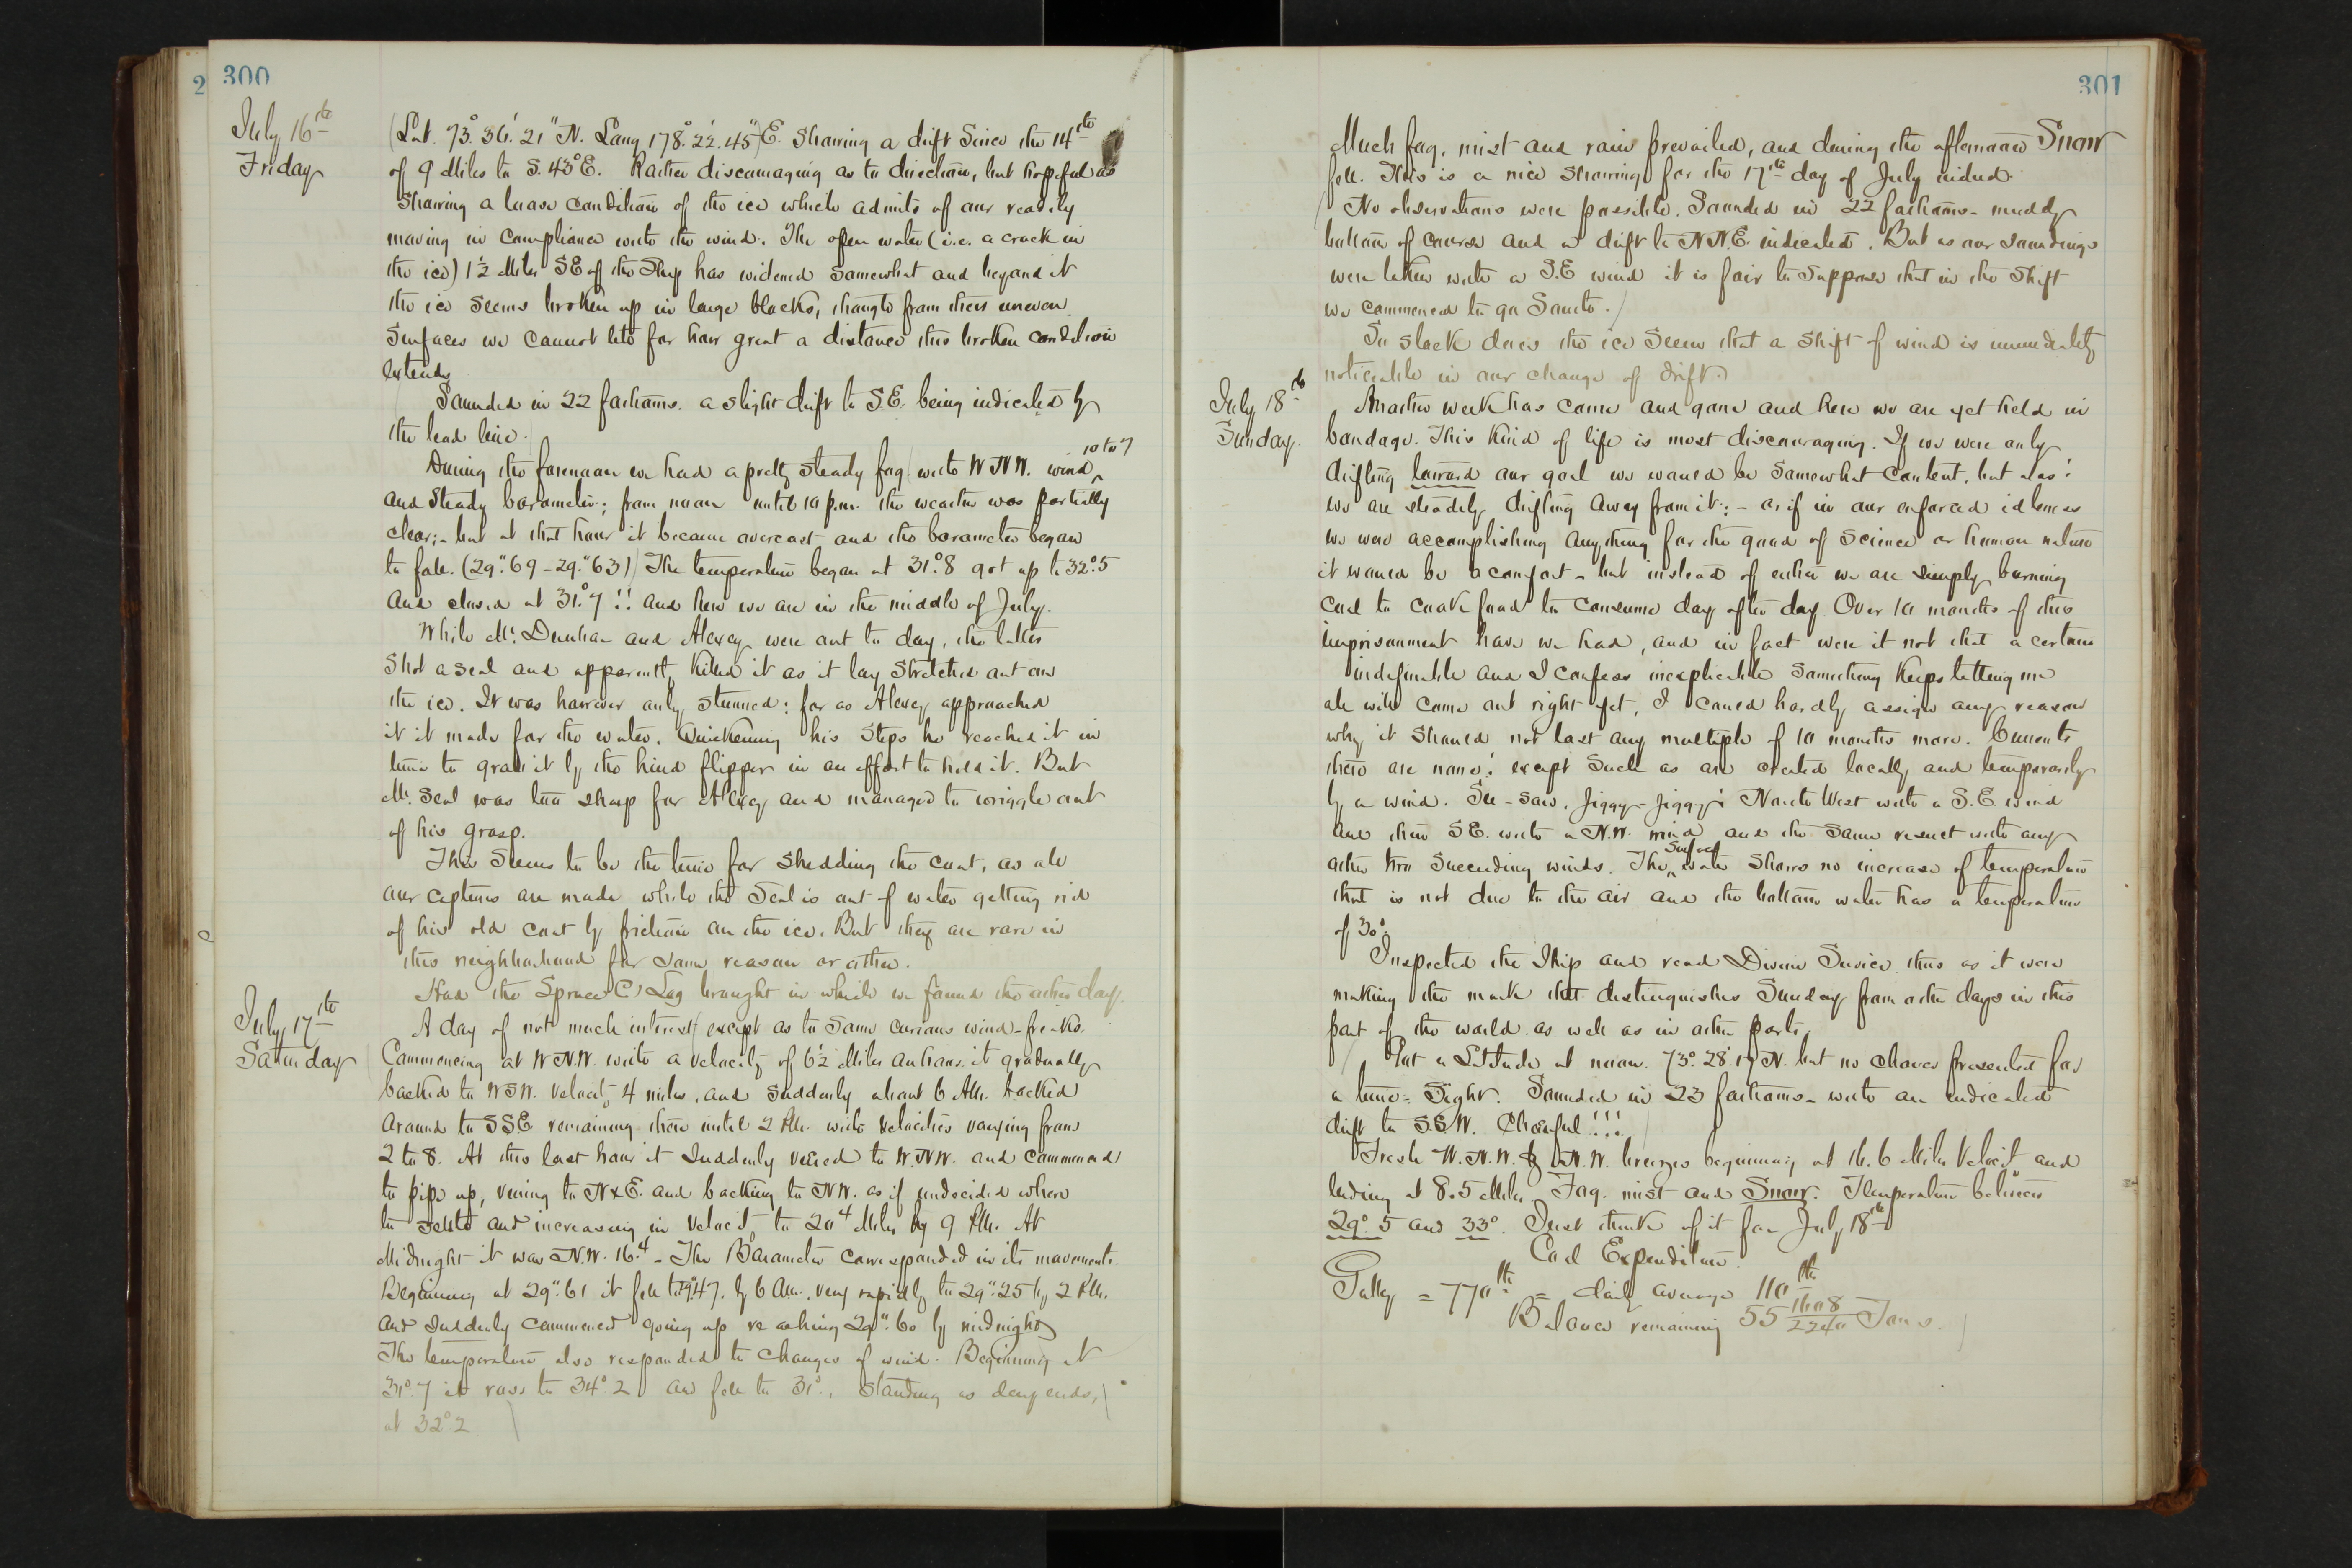 300
July 16th
Friday
(Lat. 73° 36' 21" N. Long 178° 22' 45") E. Showing a drift since the 14th
of 9 Miles to S. 43° E. Rather discouraging as to direction, but hopeful as
showing a loose condition of the ice which admits of our readily
moving in compliance with the wind. The open water (i.e. a crack in
the ice) 1½ Miles SE of the Ship has widened somewhat and beyond it
the ice seems broken up in large blocks, though from their uneven
surfaces we cannot tell for how great a distance this broken condition
extends.
Sounded in 22 fathoms. a slight drift to S.E. being indicated by
the lead line.
During the forenoon we had a pretty steady fog with WNW. wind 10 to 7
and steady barometer; from noon until 10 p.m. the weather was partially
clear;- but at that hour it became overcast and the barometer began
to fall. (29".69 - 29".63) The temperature began at 31°.8 got up to 32°.5
and closed at 31°.7!! and here we are in the middle of July.
While Mr. Dunbar and Alexey were out to day, the latter
shot a seal and apparently killed it as it lay stretched out on
the ice. It was however only stunned: for as Alexey approached
it it made for the water. Quickening his steps he reached it in
time to grab it by the hind flipper in an effort to hold it. But
Mr. Seal was too sharp for Alexey and managed to wriggle out
of his grasp.
This seems to be the time for shedding the coat, as all
our captures are made while the Seal is out of water getting rid
of his old coat by friction on the ice. But they are rare in
this neighborhood for some reason or other.
Had the Spruce (?) Log brought in which we found the other day.
July 17th
Saturday
A day of not much interest except as to some curious wind-freaks.
Commencing at WNW. with a velocity of 6½ Miles an hour it gradually
backed to WSW. velocity 4 miles, and suddenly about 6 AM. backed
around to SSE remaining there until 2 PM. with velocities varying from
2 to 8. At this last hour it suddenly veered to W.NW. and commenced
to pipe up, veering to NxE. and backing to NW. as if undecided where
to settle and increasing in velocity to 20.4 Miles by 9 PM. At
Midnight it was N.W. 16.4 - The Barometer corresponded in its movements.
Beginning at 29".61 it fell to 29".47. by 6 AM., very rapidly to 29".25 by 2 PM.
and suddenly commenced going up reaching 29".60 by midnight
The temperature also responded to changes of wind. Beginning at
31°.7 it rose to 34°.2 and fell to 31°., standing as day ends,
at 32°.2
301
Much fog, mist and rain prevailed, and during the afternoon Snow
fell. This is a nice showing for the 17th day of July indeed.
No observations were possible. Sounded in 22 fathoms - muddy
bottom of course and a drift to NN.E. indicated. But as our soundings
were taken with a S.E wind it is fair to suppose that in the shift
we commenced to go South.
So slack does the ice seem that a shift of wind is immediately
noticeable in our change of drift.
July 18th
Sunday.
Another week has come and gone and here we are yet held in
bondage. This kind of life is most discouraging. If we were only
drifting toward our goal we would be somewhat content, but alas!
we are steadily drifting away from it:- or if in our enforced idleness
we were accomplishing anything for the good of Science or human nature
it would be a comfort - but instead of either we are simply burning
coal to cook food to consume day after day. Over 10 months of this
imprisonment have we had, and in fact were it not that a certain
indefinable and I confess inexplicable something keeps telling me
all will come out right yet, I could hardly assign any reason
why it should not last any multiple of 10 months more. Currents
there are none! except such as are created locally and temporarily
by a wind. See-saw, Jiggy-Jiggy! North West with a S.E. wind
and then SE. with a N.W. wind and the same result with any
other two succeeding winds. The surface water shows no increase of temperature
that is not due to the air and the bottom water has a temperature
of 30°.
Inspected the Ship and read Divine Service thus as it were
making the mark that distinguishes Sunday from other days in this
part of the world as well as in other parts.
Got a Latitude at noon. 73° 28' 17" N. but no chance presented for
a time-sight. Sounded in 23 fathoms - with an indicated
drift to S.SW. Cheerful!!!
Fresh W.N.W. & N.W. breezes beginning at 16.6 Miles velocity and
ending at 8.5 Miles. Fog. mist and Snow. Temperature between
29°.5 and 33°. Just think of it for July 18th
Coal Expenditure.
Galley = 770 lbs = daily average 110 lbs
Balance remaining 55 1608/2240 Tons.